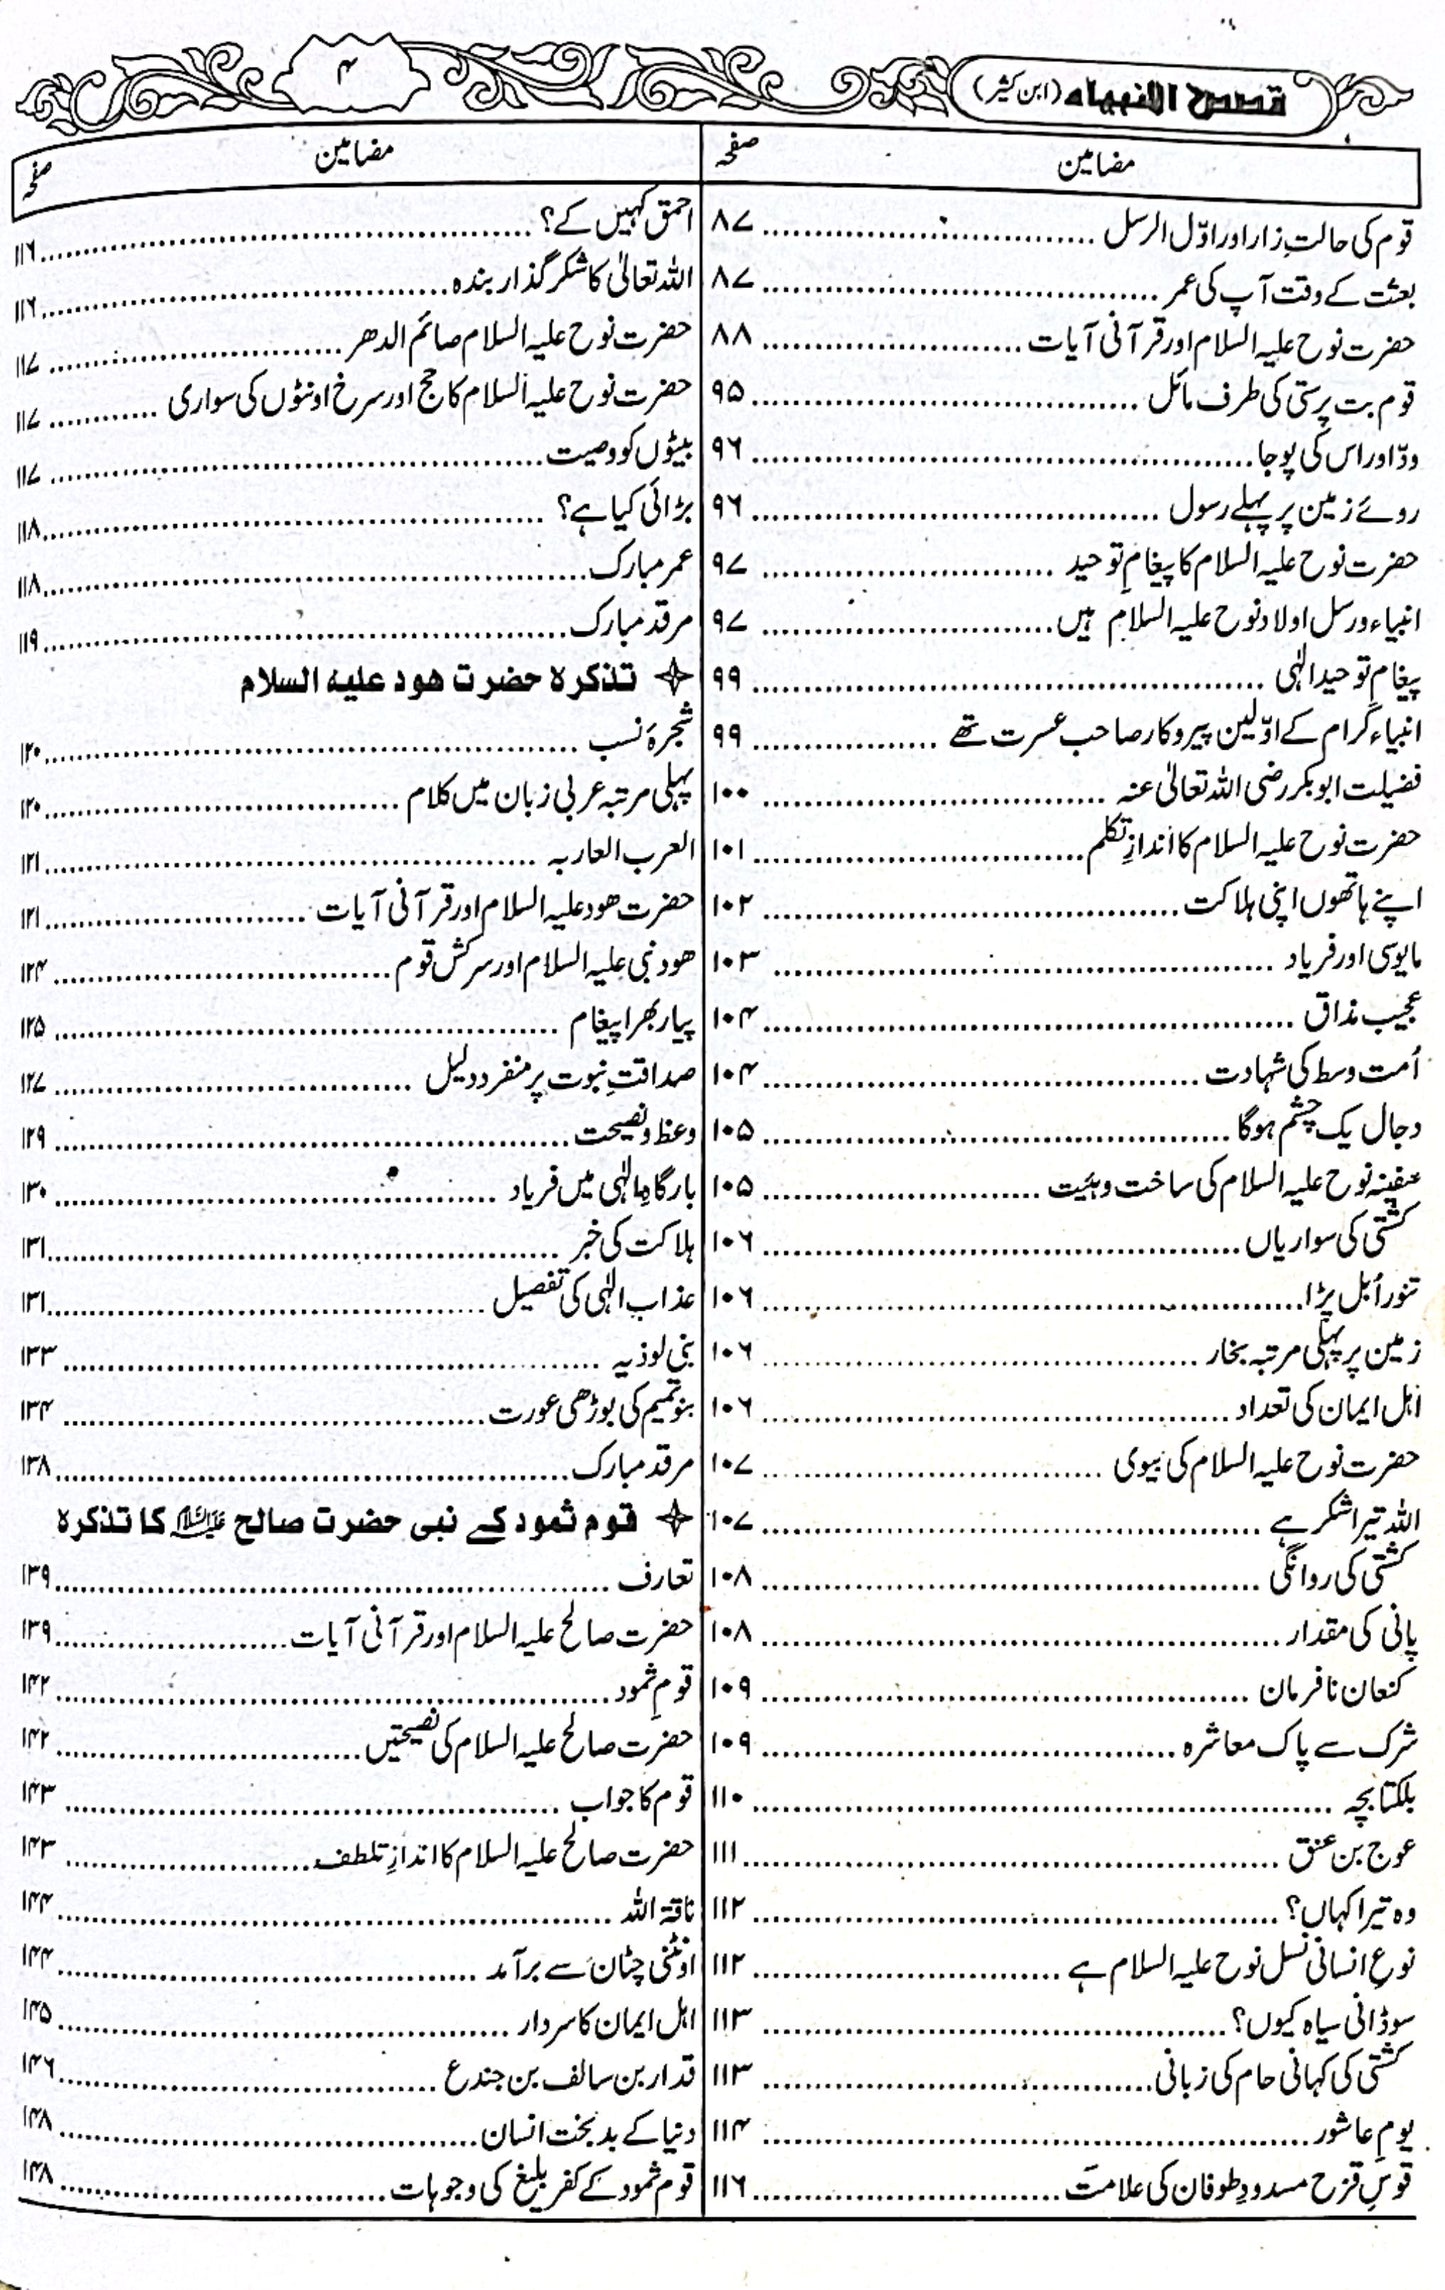 قصص الانبیاء (ابن کثیر)
۴
مضامین صفحہ
قوم کی حالتِ زار اور اوّل الرسل ۸۷
بعثت کے وقت آپ کی عمر ۸۷
حضرت نوح علیہ السلام اور قرآنی آیات ۸۸
قوم بت پرستی کی طرف مائل ۹۵
ودّ اور اس کی پوجا ۹۶
روئے زمین پر پہلے رسول ۹۶
حضرت نوح علیہ السلام کا پیغامِ توحید ۹۷
انبیاء ورسل اولاد نوح علیہ السلام ہیں ۹۷
پیغامِ توحید الٰہی ۹۹
انبیاء کرام کے اوّلین پیروکار صاحب عسرت تھے ۹۹
فضیلت ابوبکر رضی اللہ تعالیٰ عنہ ۱۰۰
حضرت نوح علیہ السلام کا اندازِ تکلم ۱۰۱
اپنے ہاتھوں اپنی ہلاکت ۱۰۲
مایوسی اور فریاد ۱۰۳
عجیب مذاق ۱۰۴
اُمت وسط کی شہادت ۱۰۴
دجال یک چشم ہوگا ۱۰۵
سفینہ نوح علیہ السلام کی ساخت وہئیت ۱۰۵
کشتی کی سواریاں ۱۰۶
تنور اُبل پڑا ۱۰۶
زمین پر پہلی مرتبہ بخار ۱۰۶
اہل ایمان کی تعداد ۱۰۶
حضرت نوح علیہ السلام کی بیوی ۱۰۷
اللہ تیرا شکر ہے ۱۰۷
کشتی کی روانگی ۱۰۸
پانی کی مقدار ۱۰۸
کنعان نافرمان ۱۰۹
شرک سے پاک معاشرہ ۱۰۹
بلکتا بچہ ۱۱۰
عوج بن عنق ۱۱۱
وہ تیرا کہاں؟ ۱۱۲
نوعِ انسانی نسل نوح علیہ السلام ہے ۱۱۲
سوڈانی سیاہ کیوں؟ ۱۱۳
کشتی کی کہانی حام کی زبانی ۱۱۳
یومِ عاشور ۱۱۴
قوسِ قزح مسدودِ طوفان کی علامت ۱۱۶
مضامین صفحہ
احمق کہیں کے؟ ۱۱۶
اللہ تعالیٰ کا شکر گذار بندہ ۱۱۶
حضرت نوح علیہ السلام صائم الدھر ۱۱۷
حضرت نوح علیہ السلام کا حج اور سرخ اونٹوں کی سواری ۱۱۷
بیٹوں کو وصیت ۱۱۷
بڑائی کیا ہے؟ ۱۱۸
عمر مبارک ۱۱۸
مرقد مبارک ۱۱۹
تذکرہ حضرت ھود علیہ السلام
شجرۂ نسب ۱۲۰
پہلی مرتبہ عربی زبان میں کلام ۱۲۰
العرب العاربہ ۱۲۱
حضرت ھود علیہ السلام اور قرآنی آیات ۱۲۱
ھود نبی علیہ السلام اور سرکش قوم ۱۲۴
پیار بھرا پیغام ۱۲۵
صداقتِ نبوت پر منفرد دلیل ۱۲۷
وعظ ونصیحت ۱۲۹
بارگاہِ الٰہی میں فریاد ۱۳۰
ہلاکت کی خبر ۱۳۱
عذاب الٰہی کی تفصیل ۱۳۱
بنی لوذیہ ۱۳۳
بنو تمیم کی بوڑھی عورت ۱۳۴
مرقد مبارک ۱۳۸
قوم ثمود کے نبی حضرت صالح علیہ السلام کا تذکرہ
تعارف ۱۳۹
حضرت صالح علیہ السلام اور قرآنی آیات ۱۳۹
قومِ ثمود ۱۴۲
حضرت صالح علیہ السلام کی نصیحتیں ۱۴۲
قوم کا جواب ۱۴۳
حضرت صالح علیہ السلام کا اندازِ تلطف ۱۴۳
ناقۃ اللہ ۱۴۴
اونٹنی چٹان سے برآمد ۱۴۴
اہل ایمان کا سردار ۱۴۵
قدار بن سالف بن جندع ۱۴۶
دنیا کے بدبخت انسان ۱۴۸
قوم ثمود کے کفر بلیغ کی وجوہات ۱۴۸